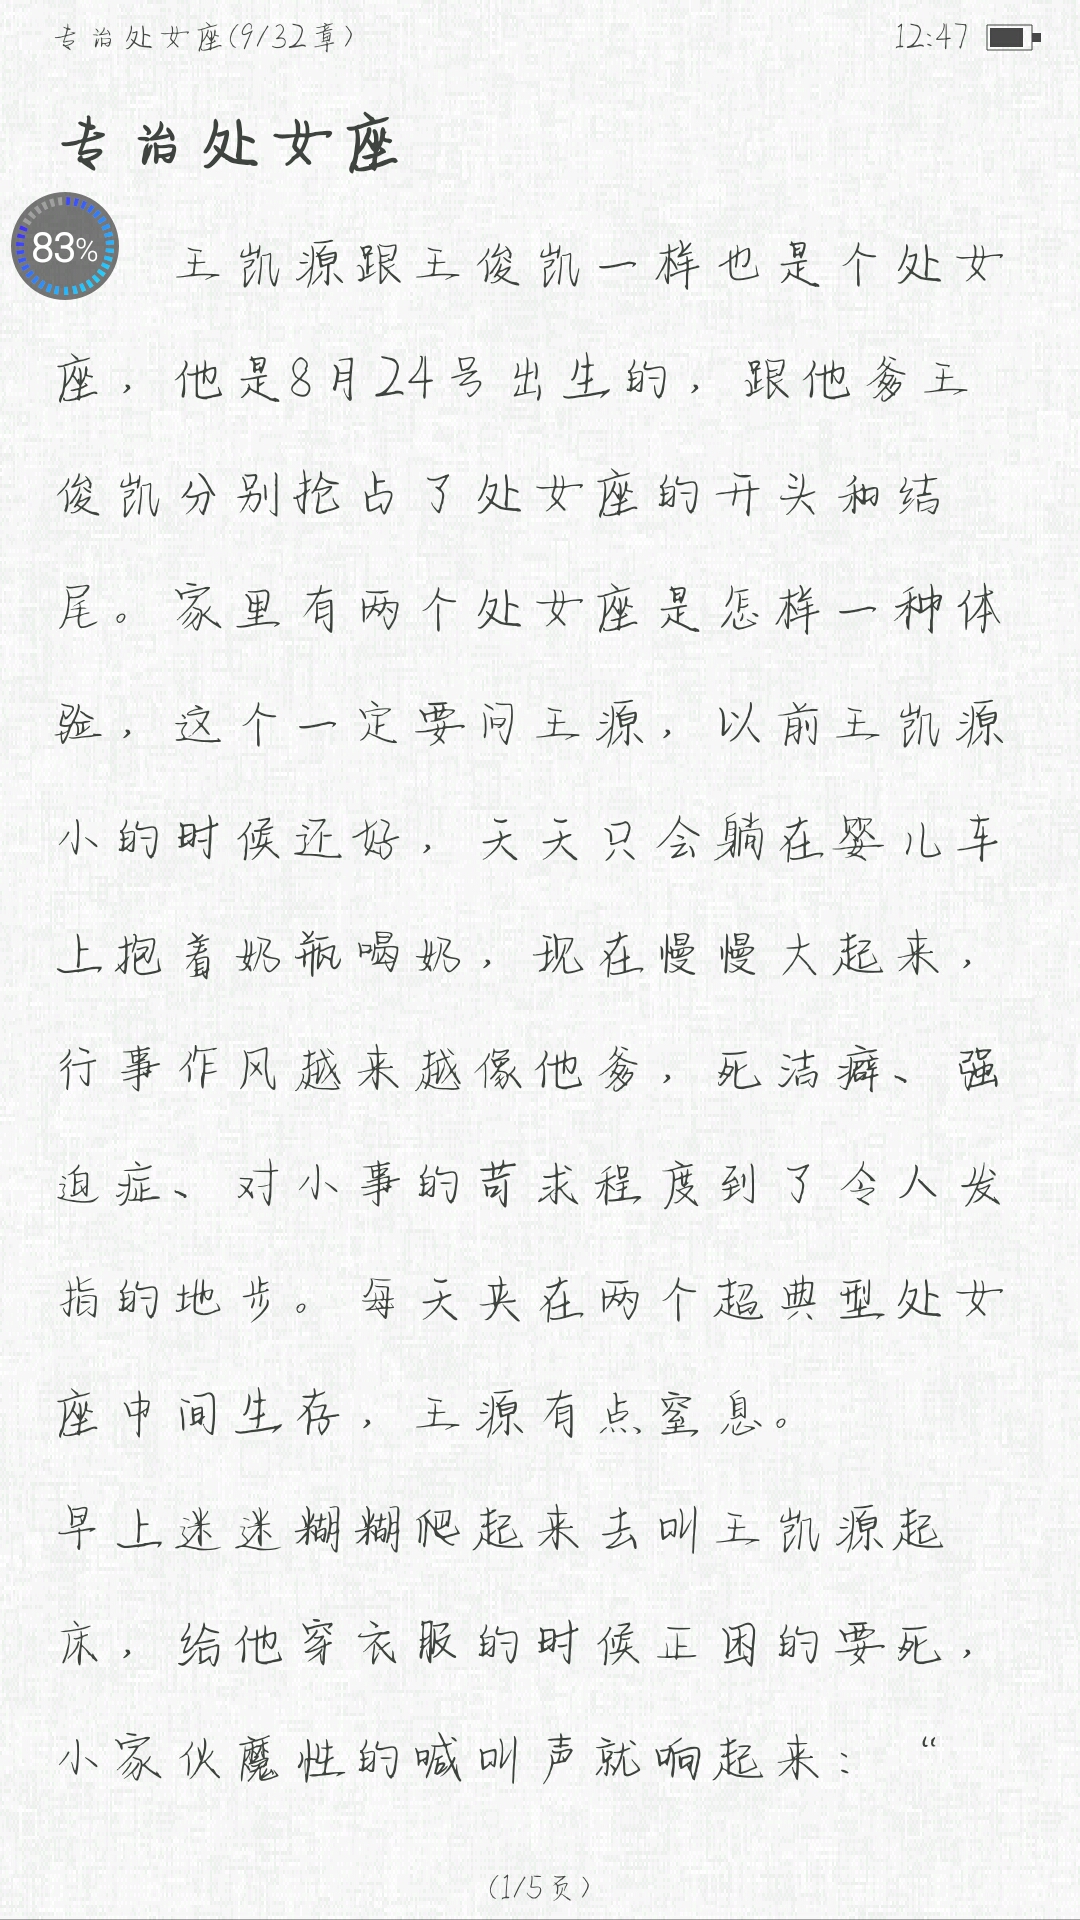 专治处女座(9/32章)
12:47
专治处女座
83%
王凯源跟王俊凯一样也是个处女
座，他是8月24号出生的，跟他爹王
俊凯分别抢占了处女座的开头和结
尾。家里有两个处女座是怎样一种体
验，这个一定要问王源，以前王凯源
小的时候还好，天天只会躺在婴儿车
上抱着奶瓶喝奶，现在慢慢大起来，
行事作风越来越像他爹，死洁癖、强
迫症、对小事的苛求程度到了令人发
指的地步。每天夹在两个超典型处女
座中间生存，王源有点窒息。
早上迷迷糊糊爬起来去叫王凯源起
床，给他穿衣服的时候正困的要死，
小家伙魔性的喊叫声就响起来：“
(1/5页)